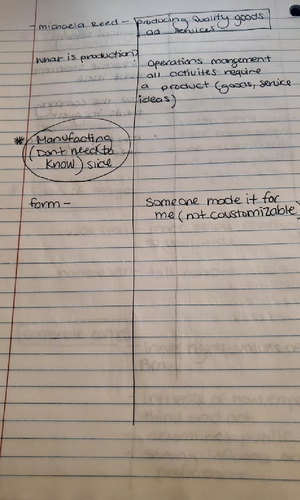 - michaela Reed - producing Quality goods
ad services
What is production?
operations mangement
all activites require
a product (goods, service
ideas)
* Manufacting
(Dont need to
know) slide
form -
Someone made it for
me (not coustomizable)